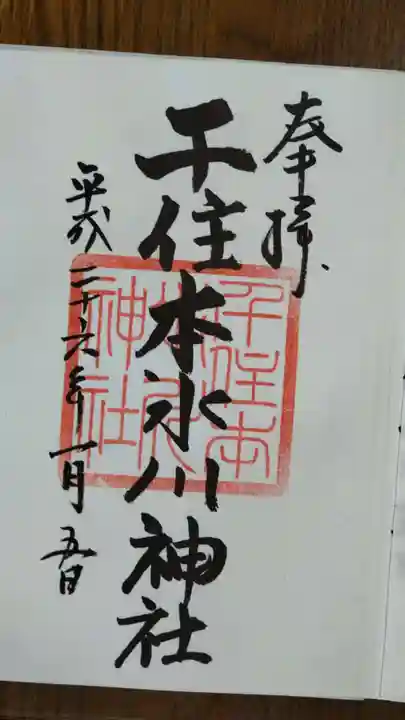 奉拝
千住本氷川神社
平成二十六年一月五日
千住本氷川神社